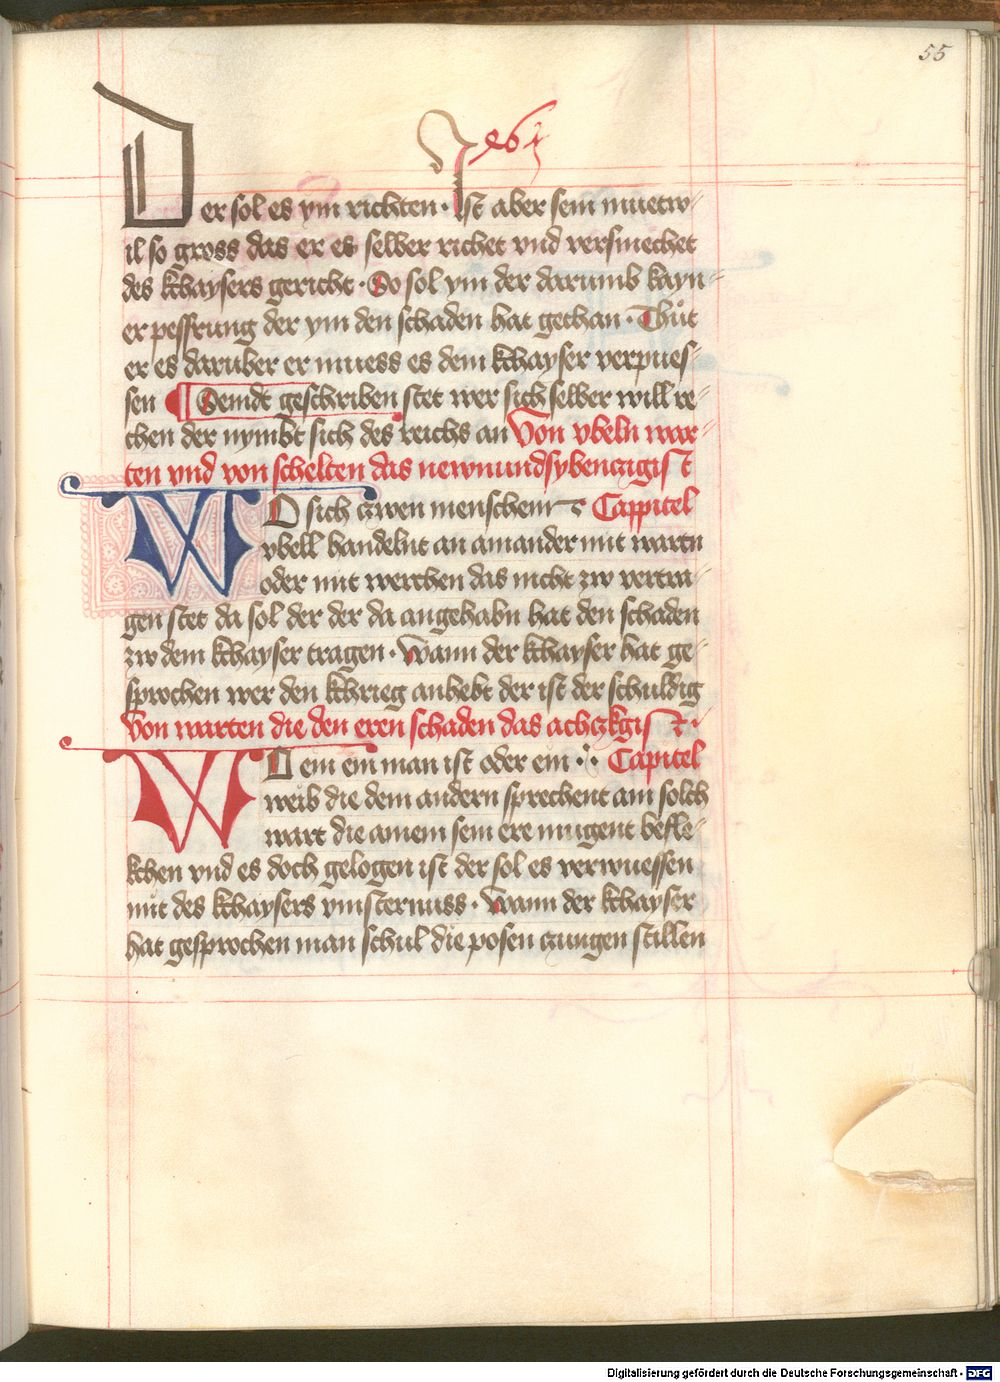 55
Der sol es ym richten · Ist aber sein muetw-
il so gross das er es selber richet vnd versmechet
des khaysers gericht · So sol ym der darumb kayn-
er pessrung der ym den schaden hat gethan · Thuͤt
er es daruber er muess es dem khayser verpues-
sen ¶ Sendt geschriben stet wer sich selber will re-
chen der nymbt sich des reichs an Von vbeln wor-
ten vnd von schelten das newnundsybenczigist
WO sich czwen menschenn Cappitel
vbell handelnt an ainander mit wortn
oder mit werchen das nicht zw vertra-
gen stet da sol der der da angehabn hat den schaden
zw dem khayser tragen · Wann der khayser hat ge-
sprochen wer den khrieg anhebt der ist der schuldig
Von worten die den eren schaden das achczkgist
WO ein ein man ist oder ein Capitel
weib die dem andern sprechent ain solch
wort die ainem sein ere mugent befle-
kchen vnd es doch gelogen ist der sol es verwuessen
mit des khaysers vinsternuss · Wann der khayser
hat gesprochen man schul die posen czungen stillen
Digitalisierung gefördert durch die Deutsche Forschungsgemeinschaft - DFG